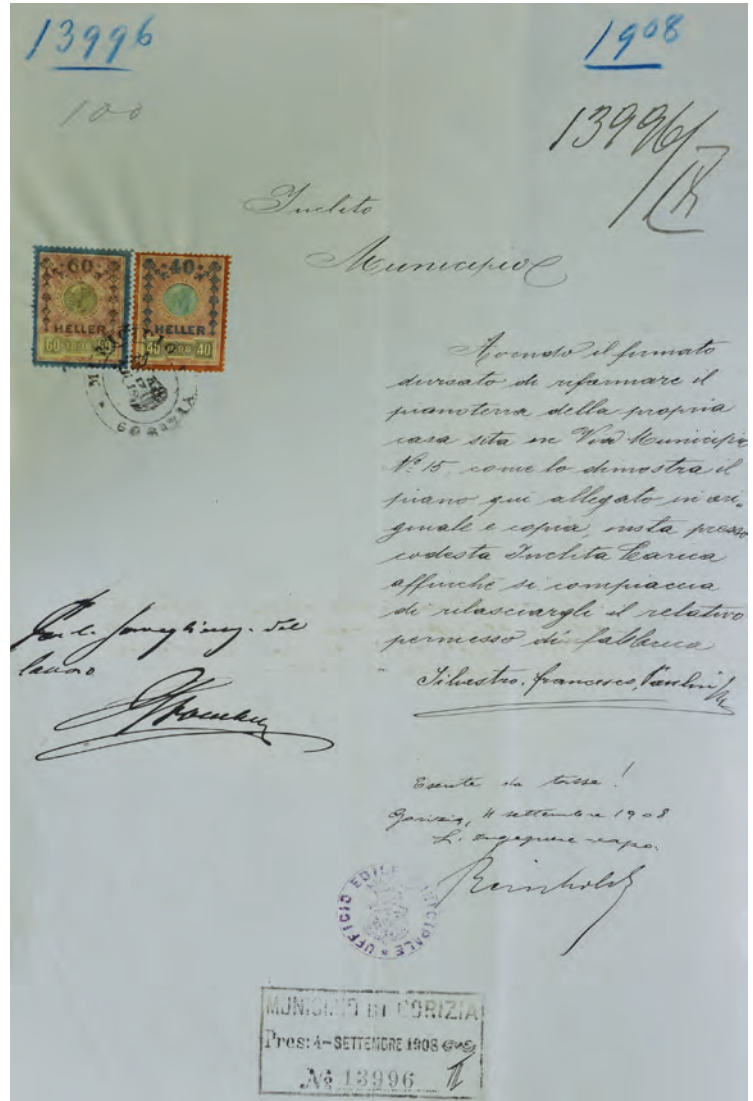 13996
1908
100
13996/IX
Inclito
Municipio
60
HELLER
60 1898 60
40
HELLER
40 1898 40
GORIZIA
Avendo il firmato
divisato di riformare il
pianoterra della propria
casa sita in Via Municipio
Nº 15, come lo dimostra il
piano qui allegato in ori„
ginale e copia, insta presso
codesta Inclita Carica
affinché si compiaccia
di rilasciargli il relativo
permesso di fabbrica
Silvestro, Francesco, Paulin
del
lavoro
Esente da tasse!
Gorizia, 4 settembre 1908
L'ingegnere-capo.
Reinhold
UFFICIO EDILE MUNICIPALE
MUNICIPIO DI GORIZIA
Pres: 4-SETTEMBRE 1908
Nº 13996 II